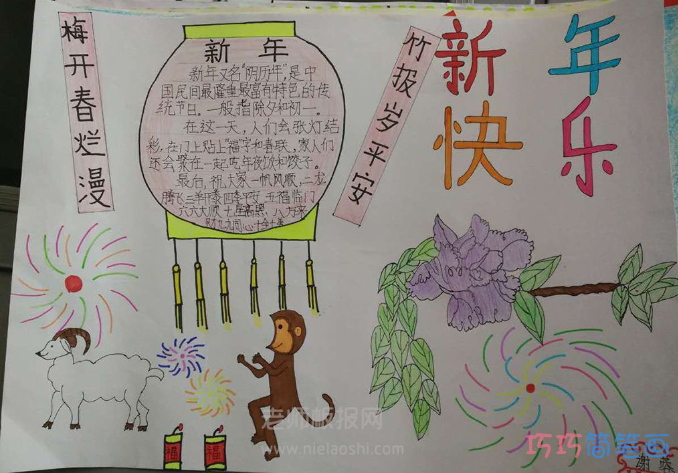 梅开春烂漫
新 年
新年又名"阴历年",是中
国民间最隆重最富有特色的传
统节日。一般指除夕和初一。
在这一天,人们会张灯结
彩,在门上贴上福字和春联,家人们
还会聚在一起吃年夜饭和饺子。
最后,祝大家一帆风顺,二龙
腾飞三羊开泰四季平安 五福临门
六六大顺 七星高照 八方来
财 九九同心 十全十美
竹报岁平安
新年
快乐
福
福
老师板报网
www.nielaoshi.com
巧巧简笔画